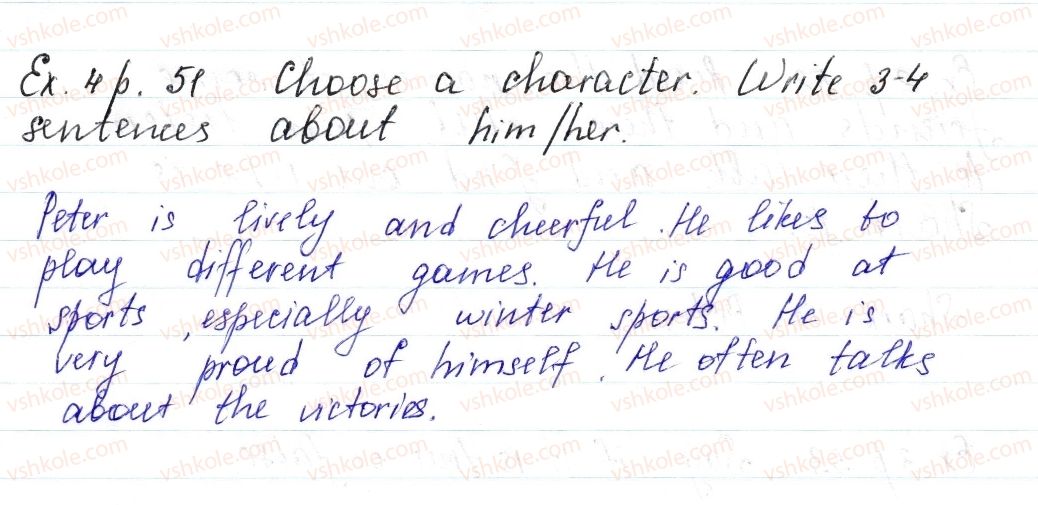 Ex. 4 p. 51 Choose a character. Write 3-4
sentences about him/her.
Peter is lively and cheerful. He likes to
play different games. He is good at
sports, especially winter sports. He is
very proud of himself. He often talks
about the victories.